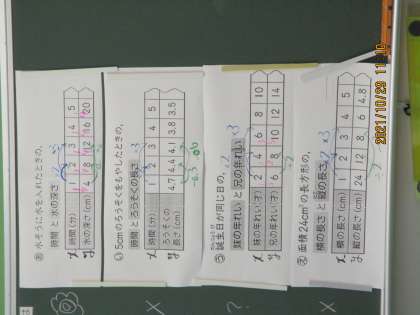 あ 水そうに水を入れたときの、
時間と水の深さ
x 時間(分) 1 2 3 4 5
y 水の深さ(cm) 4 8 12 16 20
い 5cmのろうそくをもやしたときの、
時間とろうそくの長さ
x 時間(分) 1 2 3 4 5
y ろうそくの長さ(cm) 4.7 4.4 4.1 3.8 3.5
う 誕生日が同じ日の、
妹の年れいと兄の年れい
x 妹の年れい(才) 2 4 6 8 10
y 兄の年れい(才) 6 8 10 12 14
え 面積24cm²の長方形の、
横の長さと縦の長さ
x 横の長さ(cm) 1 2 3 4 5
y 縦の長さ(cm) 24 12 8 6 4.8